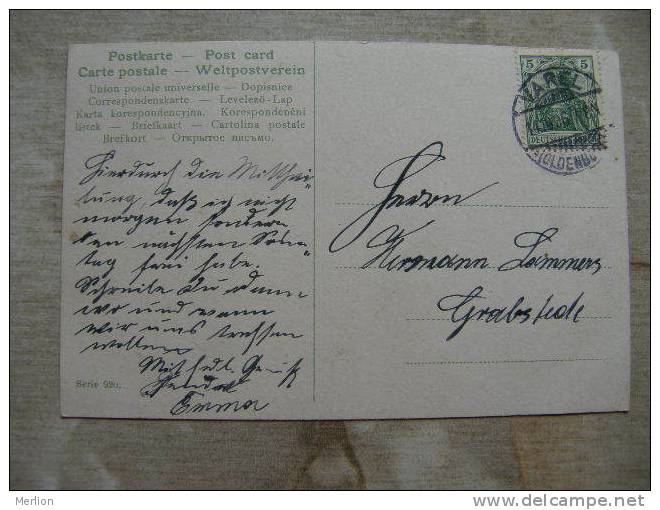 Postkarte — Post card
Carte postale — Weltpostverein
Union postale universelle — Dopisnice
Correspondenskarte — Levelező-Lap
Karta korespondencyjna. Korespondenční
lístek — Briefkaart — Cartolina postale
Brefkort — Открытое письмо.
5 5
VAREL
(OLDENB
Hierdurch die Mitthei-
lung, daß ich nicht
morgen sondern
den nächsten Sonn-
tag frei habe.
Schreibe Du dann
wo und wann
wir uns treffen
wollen
Mit herzl. Gruß
Emma
Serie 920.
Herrn
Hermann Lammers
Grabstede
Merlion
www.delcampe.net